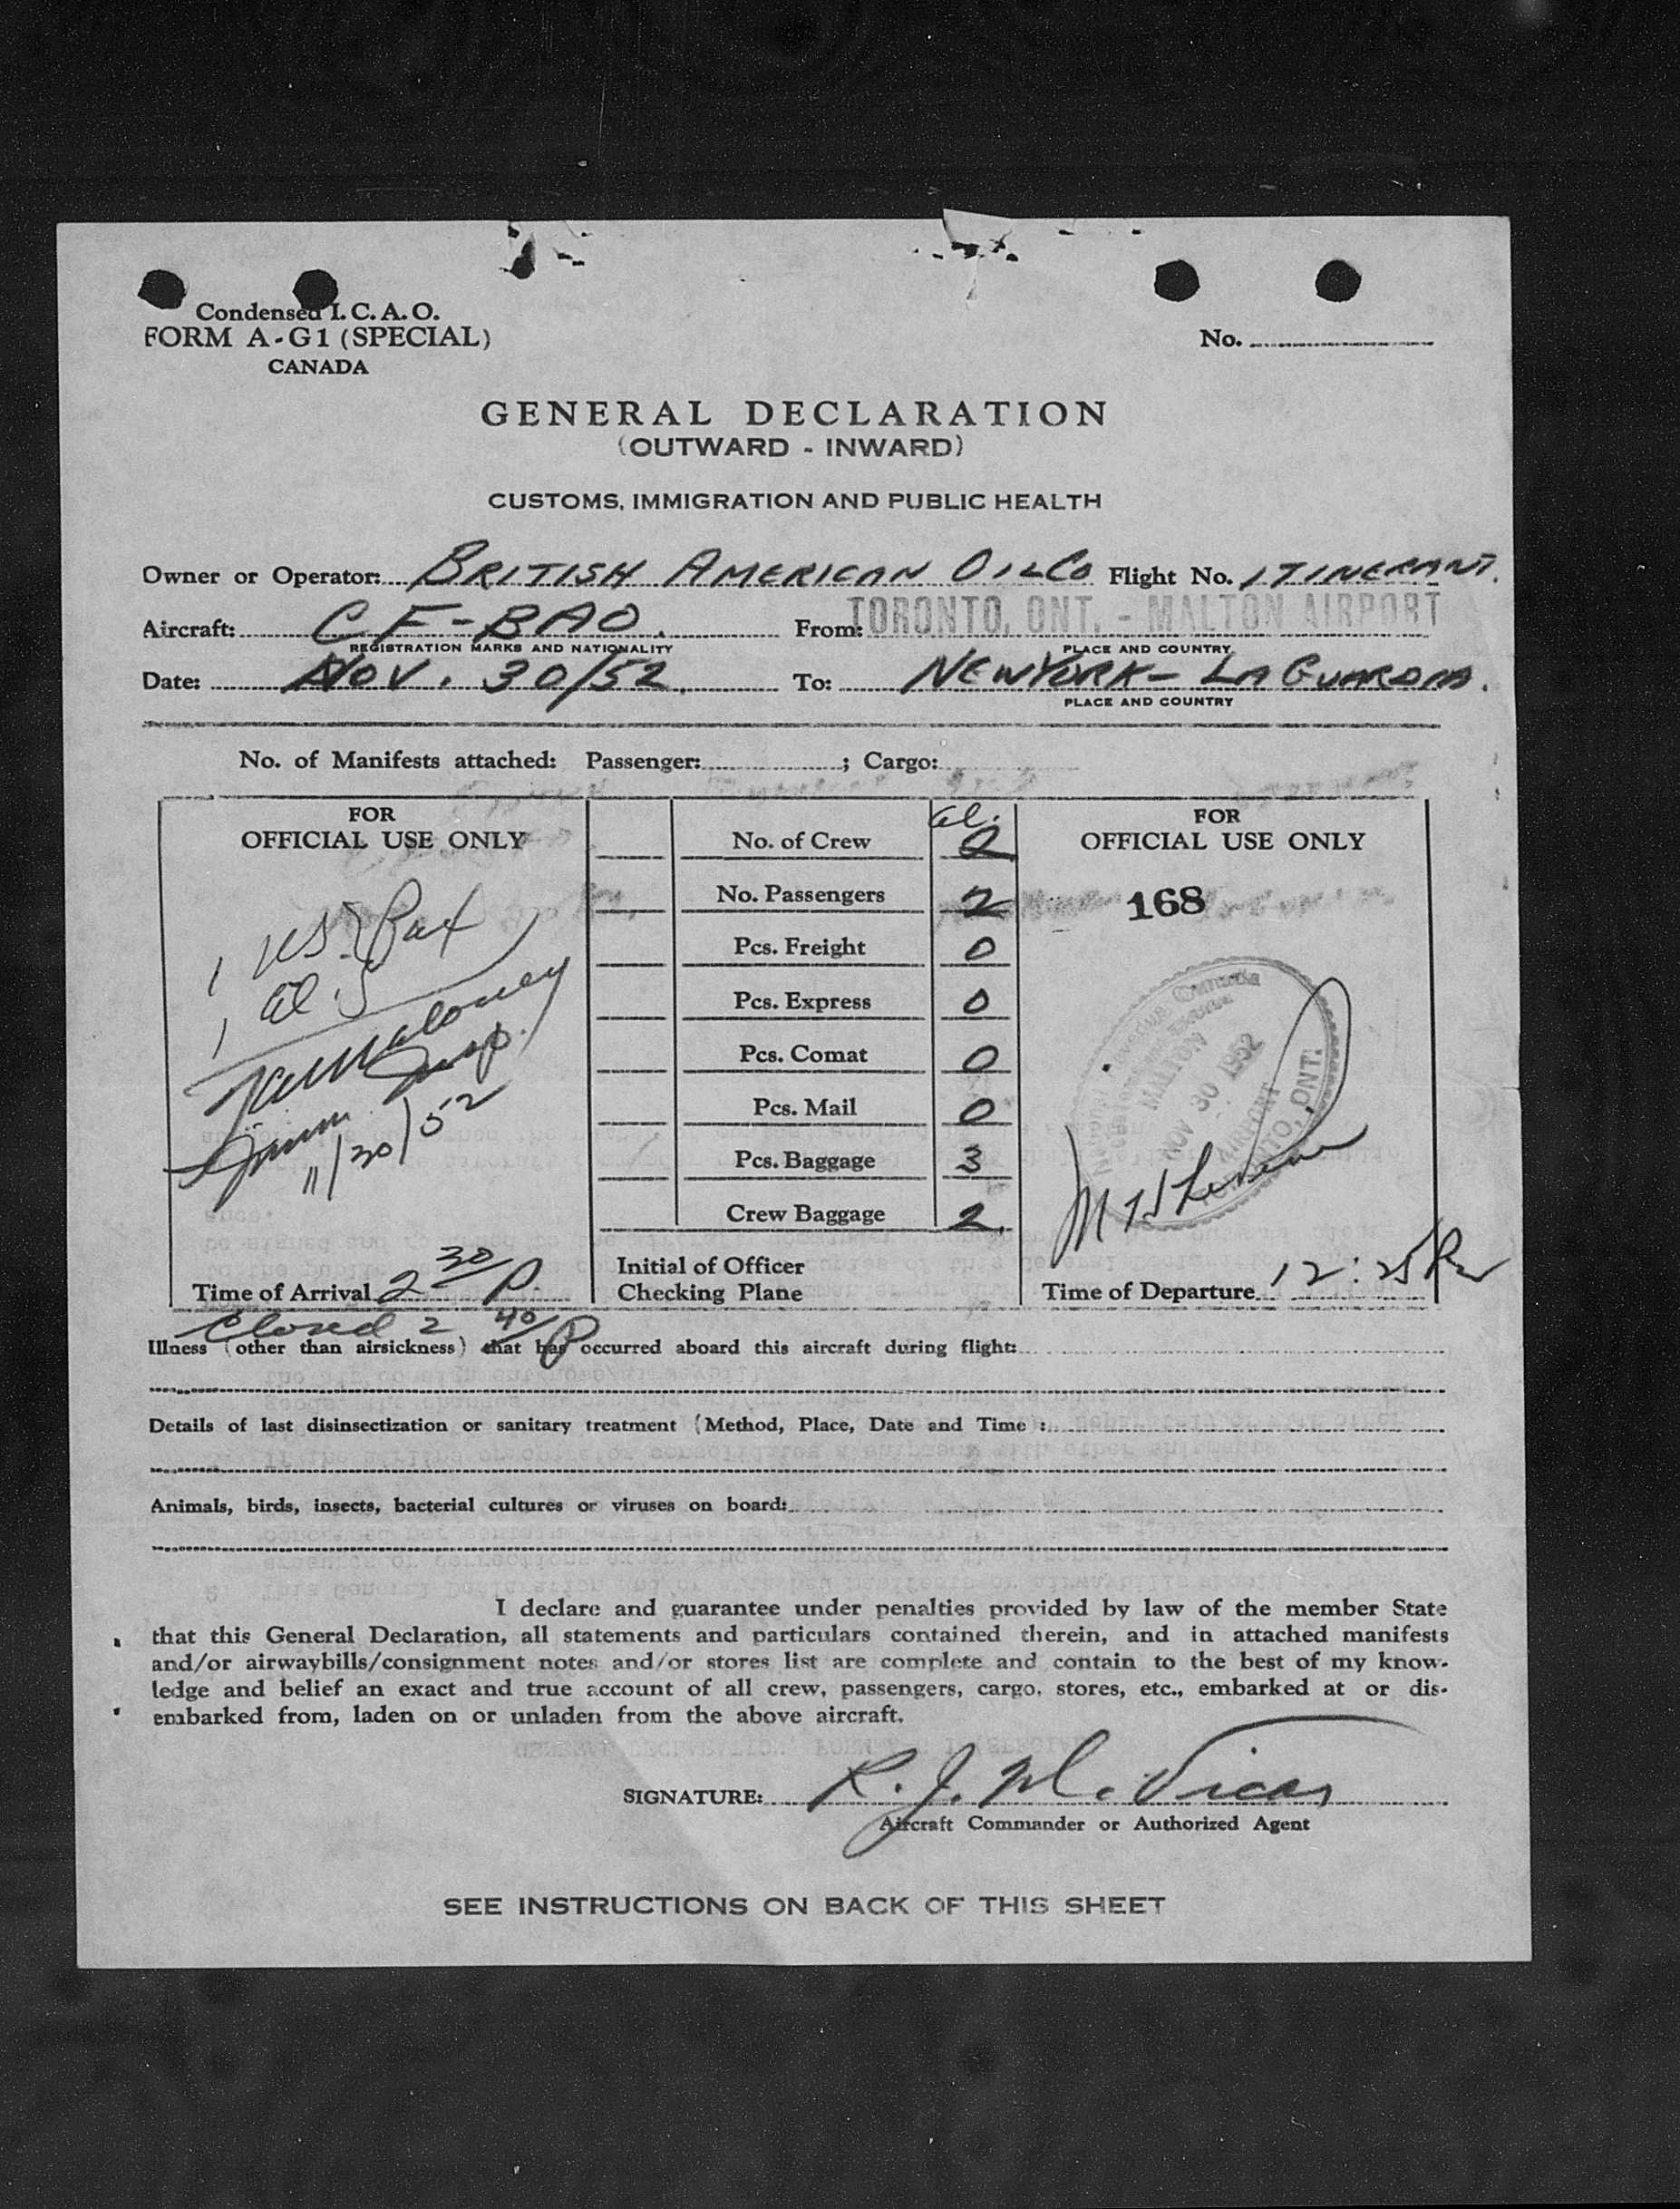 Condensed I.C.A.O.
FORM A-G1 (SPECIAL)
CANADA
No.
GENERAL DECLARATION
(OUTWARD - INWARD)
CUSTOMS, IMMIGRATION AND PUBLIC HEALTH
Owner or Operator: BRITISH AMERICAN OIL CO Flight No. ITINERANT.
Aircraft: CF-BAO. From: TORONTO, ONT. - MALTON AIRPORT
REGISTRATION MARKS AND NATIONALITY PLACE AND COUNTRY
Date: NOV. 30/52. To: NEW YORK - LA GUARDIA.
PLACE AND COUNTRY
No. of Manifests attached: Passenger: ; Cargo:
FOR
OFFICIAL USE ONLY
1 US. Pax
1 al.
Immi Insp.
11/30/52
Time of Arrival 2 30/P.
Closed 2 40/P
al.
No. of Crew 2
No. Passengers 2
Pcs. Freight 0
Pcs. Express 0
Pcs. Comat 0
Pcs. Mail 0
Pcs. Baggage 3
Crew Baggage 2.
Initial of Officer
Checking Plane
FOR
OFFICIAL USE ONLY
168
Canada
MALTON
NOV 30 1952
AIRPORT
TORONTO, ONT.
Time of Departure 12:25 P
Illness (other than airsickness) that has occurred aboard this aircraft during flight:
Details of last disinsectization or sanitary treatment (Method, Place, Date and Time :
Animals, birds, insects, bacterial cultures or viruses on board:
I declare and guarantee under penalties provided by law of the member State
that this General Declaration, all statements and particulars contained therein, and in attached manifests
and/or airwaybills/consignment notes and/or stores list are complete and contain to the best of my know-
ledge and belief an exact and true account of all crew, passengers, cargo, stores, etc., embarked at or dis-
embarked from, laden on or unladen from the above aircraft.
SIGNATURE: R. J. Mc. Vicar
Aircraft Commander or Authorized Agent
SEE INSTRUCTIONS ON BACK OF THIS SHEET